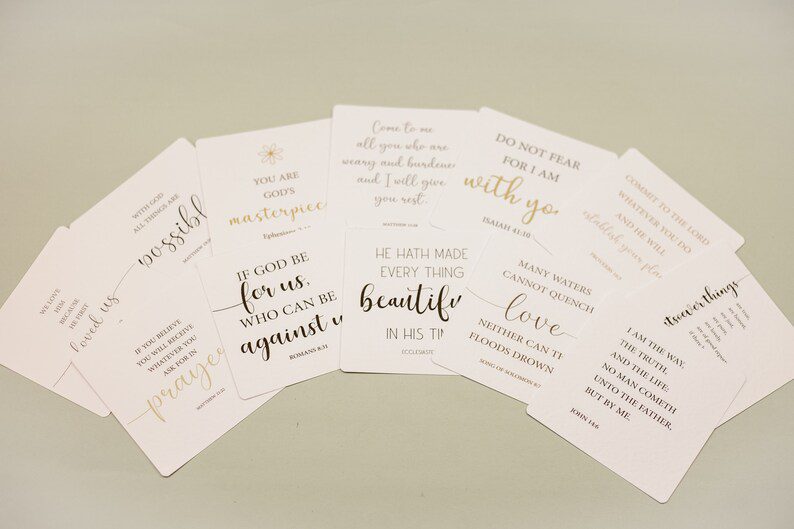 WE LOVE
HIM
BECAUSE
HE FIRST
loved us
WITH GOD
ALL THINGS ARE
possibl
MATTHEW
YOU ARE
GOD'S
masterpiec
Ephesians
Come to me
all you who are
weary and burdene
and I will give
you rest.
MATTHEW 11:28
DO NOT FEAR
FOR I AM
with yo
ISAIAH 41:10
COMMIT TO THE LORD
WHATEVER YOU DO
AND HE WILL
establish your plan
PROVERBS 16:3
IF YOU BELIEVE
YOU WILL RECEIVE
WHATEVER YOU
ASK FOR IN
prayer
MATTHEW 21:22
IF GOD BE
for us,
WHO CAN BE
against u
ROMANS 8:31
HE HATH MADE
EVERY THING
beautifu
IN HIS TIM
ECCLESIASTE
MANY WATERS
CANNOT QUENCH
love
NEITHER CAN TH
FLOODS DROWN
SONG OF SOLOMON 8:7
I AM THE WAY,
THE TRUTH,
AND THE LIFE:
NO MAN COMETH
UNTO THE FATHER,
BUT BY ME.
JOHN 14:6
atsoever things
are true,
are honest,
are just,
are pure,
are lovely
are of good repor
if there